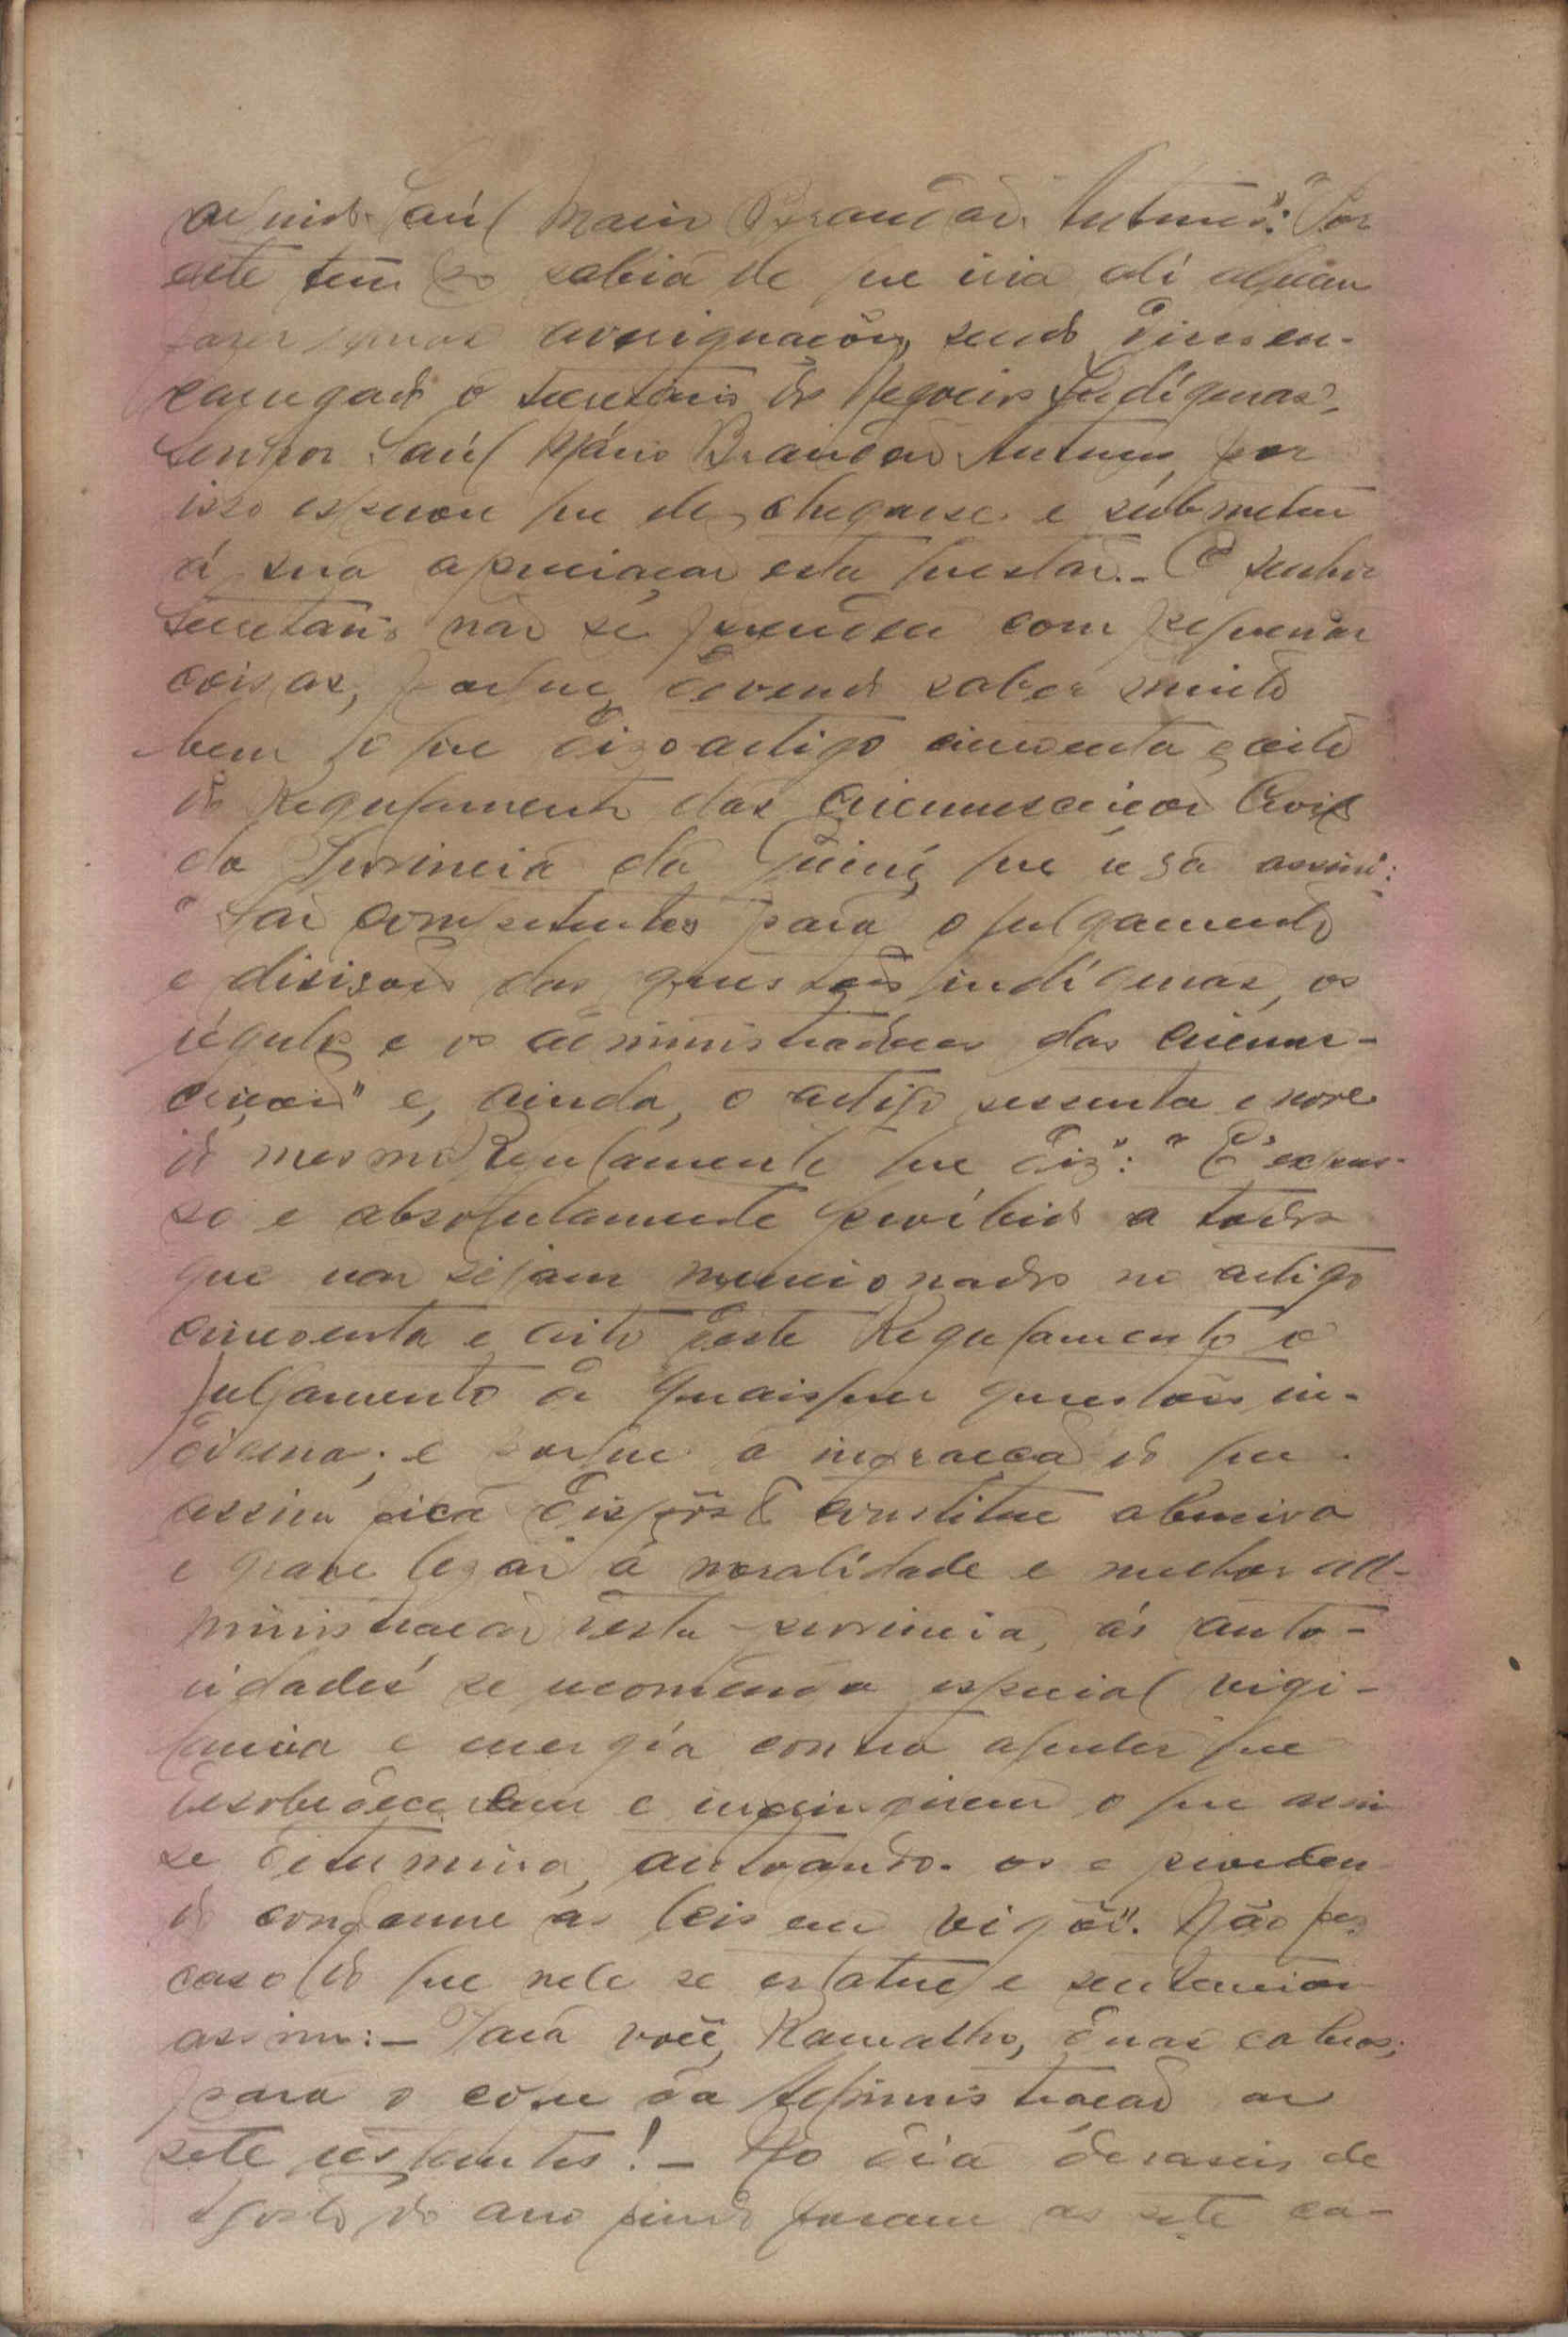 Saúl Mário Brandão Antunes". Por
este tempo sabia-se que iria ali alguem
fazer averiguações, sendo disso en-
carregado o secretario dos Negocios Indígenas,
senhor Saúl Mário Brandão Antunes, por
isso esperou que ele chegasse e submeteu
á sua apreciação esta questão. - O senhor
Secretario não se prendeu com pequenas
coisas, porque, devendo saber muito
bem o que diz o artigo cincoenta e oito
do Regulamento das Circunscrições Civis
da Provincia da Guiné, que reza assim:
"São competentes para o julgamento
e divisões das questões indígenas, os
régulos e os administradores das circuns-
crições" e, ainda, o artigo sessenta e nove
do mesmo Regulamento que diz: "É expres-
so e absolutamente proíbido a todos
que não sejam mencionados no artigo
cincoenta e oito deste Regulamento o
julgamento de quaisquer questões in-
digenas; e porque a infracção do que
assim fica disposto constitue abusiva
e grave lesão á moralidade e melhor ad-
ministração desta provincia, ás auto-
ridades se recomenda especial vigi-
lancia e energía contra aqueles que
desobedecerem e infringirem o que assim
se determina, autoando-os e proceden-
do conforme as leis em vigôr". Não fez
caso do que nele se estatue e sentenciou
assim: - Para você, Ramalho, duas cabras;
para o cofre da Administração as
sete restantes! - No dia dezaseis de
Agosto do ano findo foram as sete ca-